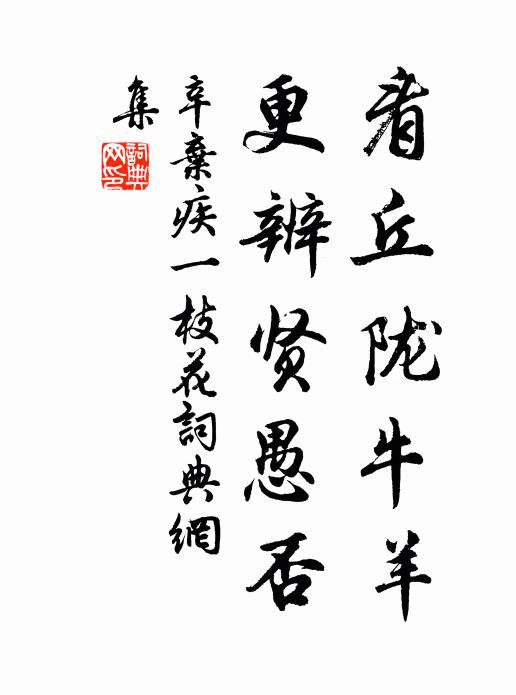 看丘陇牛羊
更辨贤愚否
辛棄疾一枝花詞典網
集
詞典网印